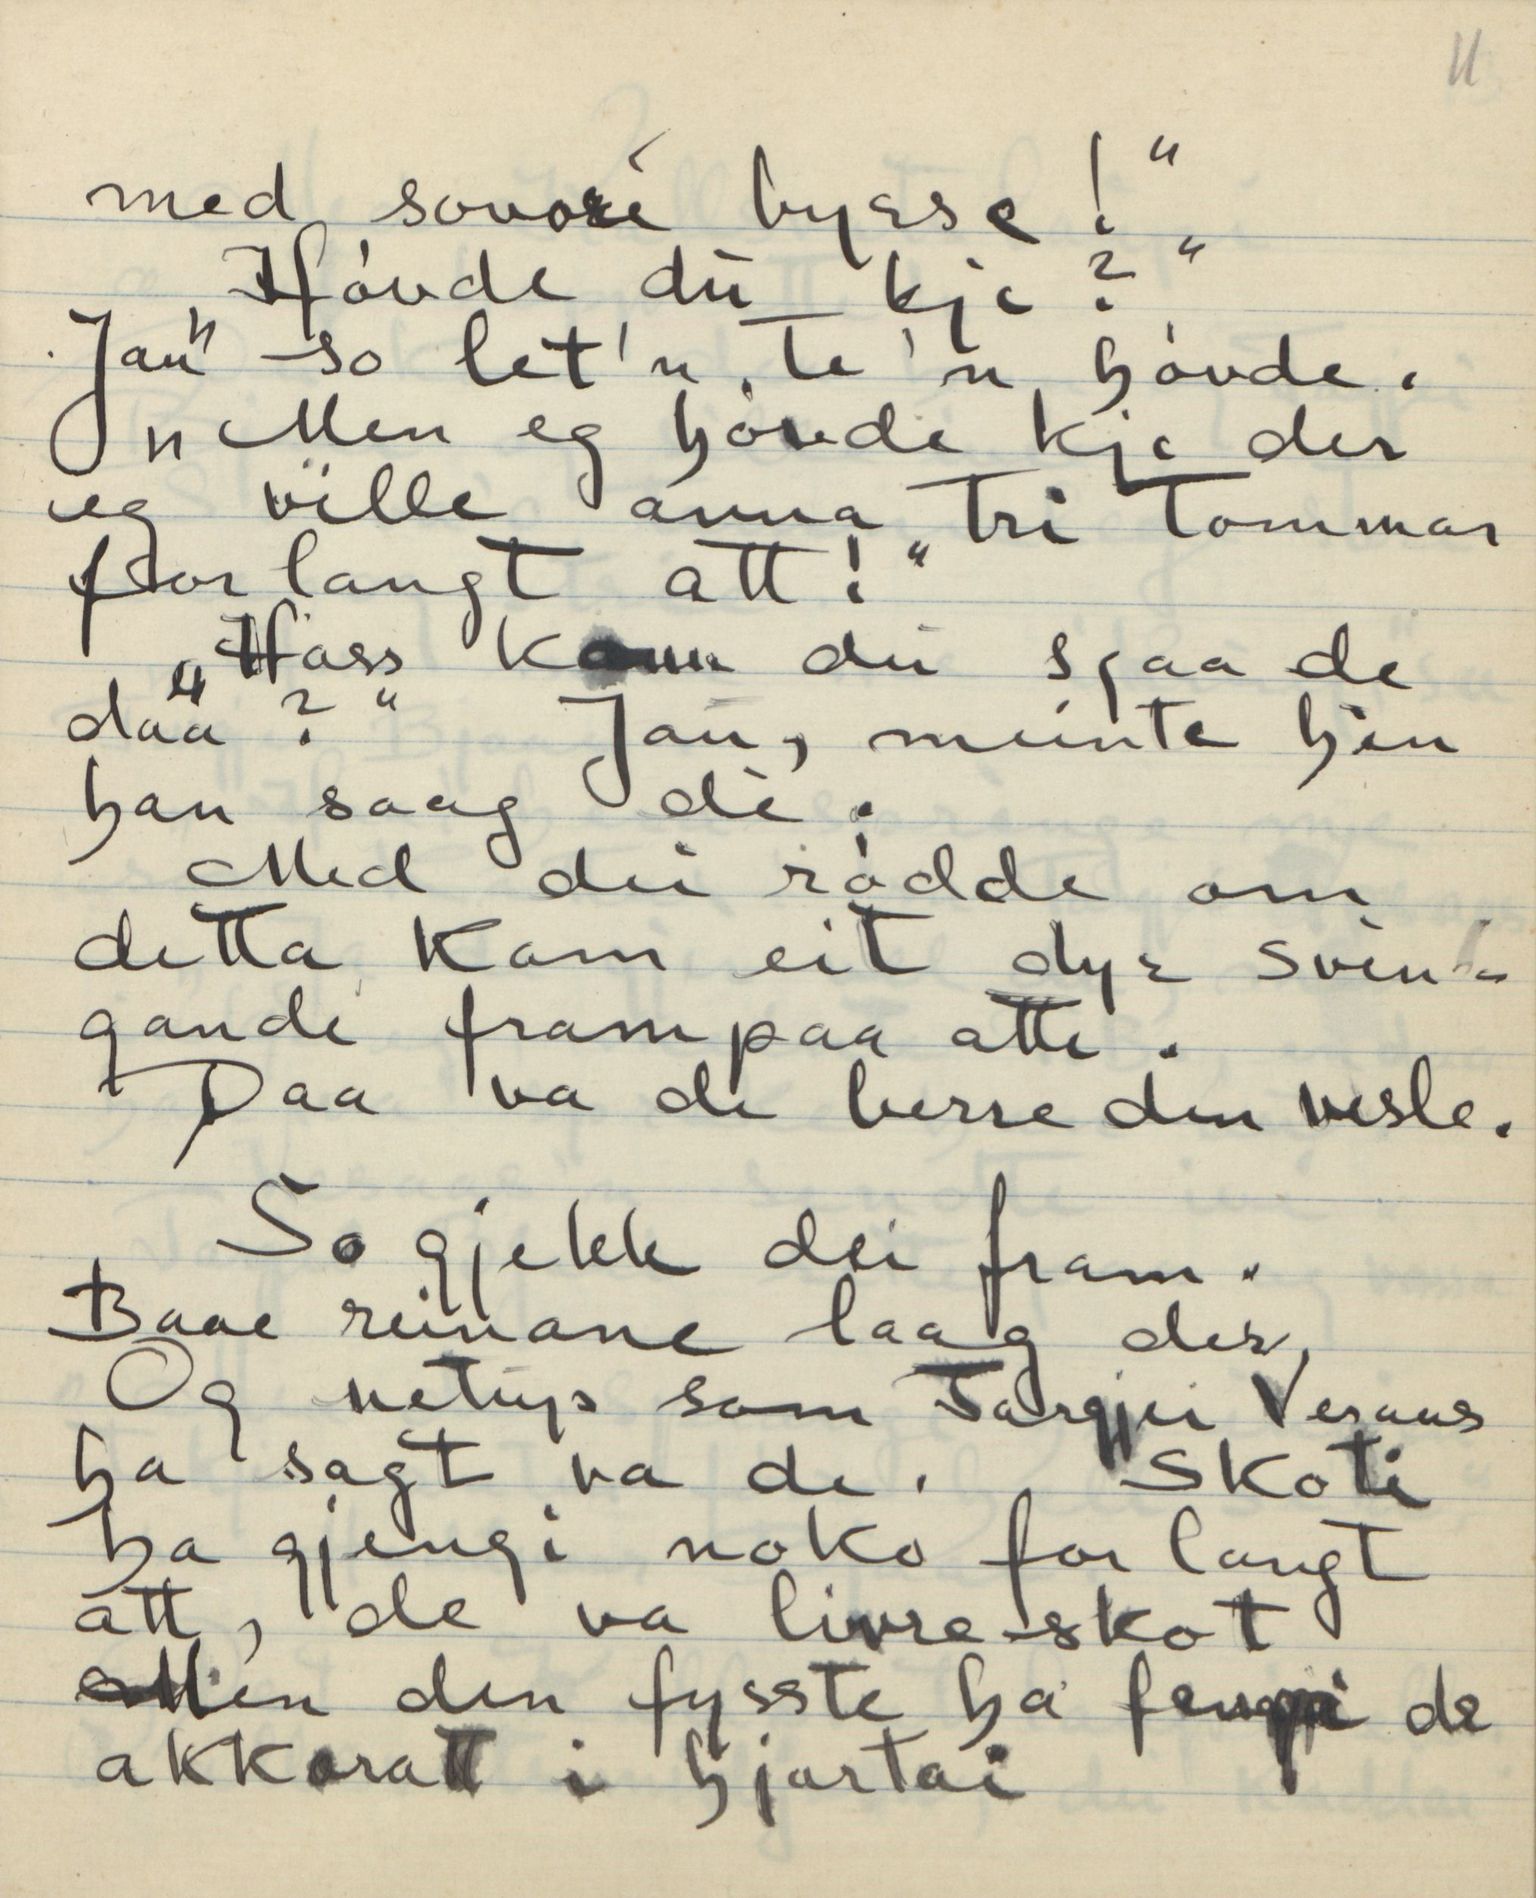 11
med sovori byrse!"
"Hóvde dü kje?"
"Jau" so let'n, te'n hóvde.
"Men eg hóvde kje der
eg ville anna tri tommar
for langt att!"
"Hoss kann dü sjaa de
daa?" Jau, meinte hin
han saag dè.
Med dei rødde om
detta kom eit dyr svin-
gande frampaa atte.
Daa va de berre den vesle.
So gjekk dei fram.
Baae reinane laag der,
Og netüp som Targjei Vesaas
ha sagt va de. Skoti
ha gjengi noko for langt
att, de va livre-skot
Men den fysste ha fengi de
akkoratt i hjartai